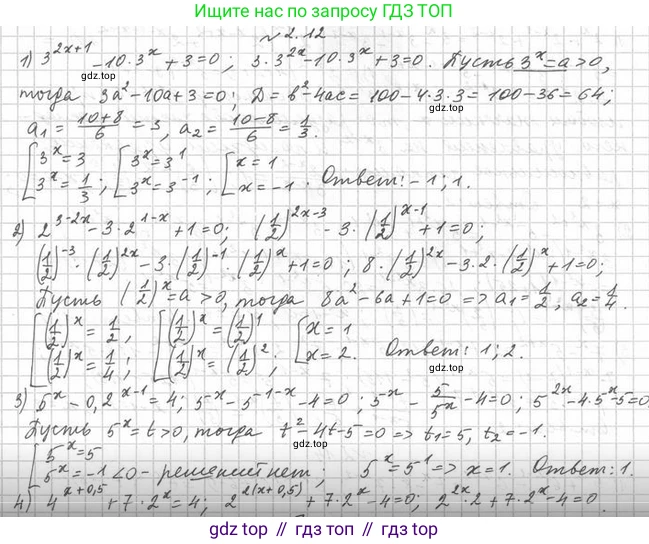 Ищите нас по запросу ГДЗ ТОП
№ 2.12
1) 3^{2x+1} - 10·3^x + 3 = 0; 3·3^{2x} - 10·3^x + 3 = 0. Пусть 3^x = a > 0,
gdz.top
тогда 3a² - 10a + 3 = 0; D = b² - 4ac = 100 - 4·3·3 = 100 - 36 = 64;
a₁ = (10+8)/6 = 3, a₂ = (10-8)/6 = 1/3.
gdz.top
[3^x = 3; 3^x = 1/3; [3^x = 3^1; 3^x = 3^{-1}; [x = 1; x = -1. Ответ: -1; 1.
gdz.top
2) 2^{3-2x} - 3·2^{1-x} + 1 = 0; (1/2)^{2x-3} - 3·(1/2)^{x-1} + 1 = 0;
gdz.top
(1/2)^{-3}·(1/2)^{2x} - 3·(1/2)^{-1}·(1/2)^x + 1 = 0; 8·(1/2)^{2x} - 3·2·(1/2)^x + 1 = 0;
gdz.top
Пусть (1/2)^x = a > 0, тогда 8a² - 6a + 1 = 0 => a₁ = 1/2, a₂ = 1/4.
gdz.top
[(1/2)^x = 1/2, (1/2)^x = 1/4; [(1/2)^x = (1/2)^1 (1/2)^x = (1/2)^2; [x = 1 x = 2. Ответ: 1; 2.
gdz.top
3) 5^x - 0,2^{x-1} = 4; 5^x - 5^{1-x} - 4 = 0; 5^x - 5/5^x - 4 = 0; 5^{2x} - 4·5^x - 5 = 0
gdz.top
Пусть 5^x = t > 0, тогда t² - 4t - 5 = 0 => t₁ = 5, t₂ = -1.
[5^x = 5 5^x = -1 < 0 - решений нет; 5^x = 5^1 => x = 1. Ответ: 1.
gdz.top
4) 4^{x+0,5} + 7·2^x = 4; 2^{2(x+0,5)} + 7·2^x - 4 = 0; 2^{2x}·2 + 7·2^x - 4 = 0.
gdz top // гдз топ // gdz.top